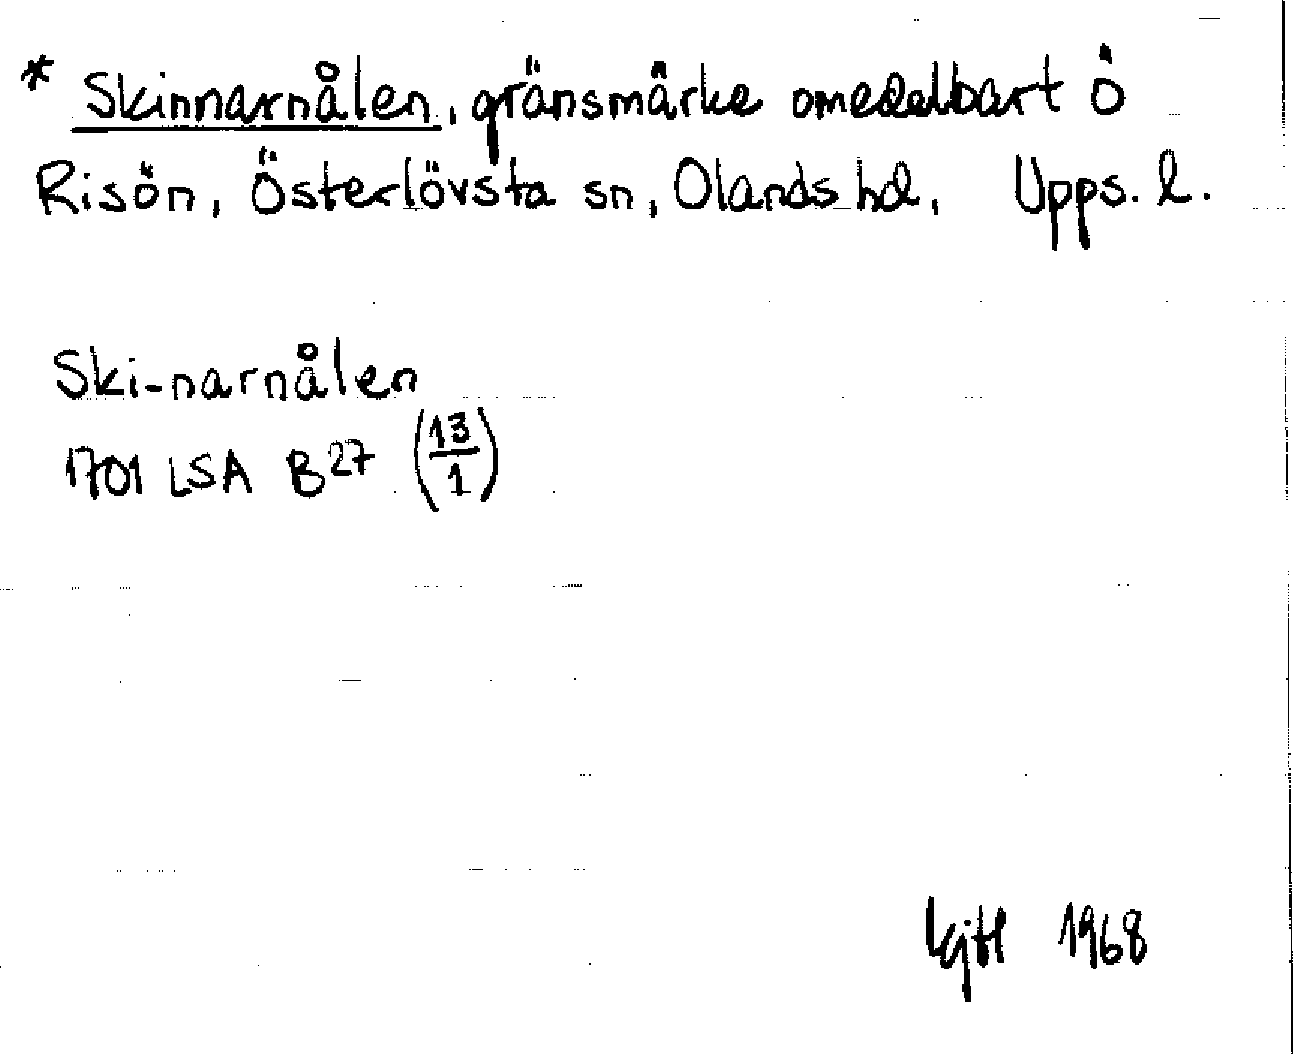 * Skinnarnålen, gränsmärke omedelbart Ö
Risön, Österlövsta sn, Olands hd, Upps. l.
Ski-narnålen
1701 LSA B27 (13/1)
1968